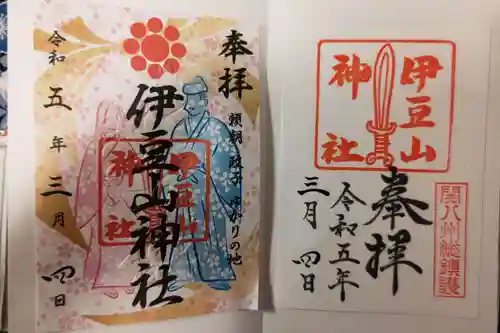 奉拝
頼朝 政子 ゆかりの地
伊豆山神社
伊豆山
神社
令和五年三月四日
伊豆山
神社
関八州総鎮護
奉拝
令和五年
三月四日